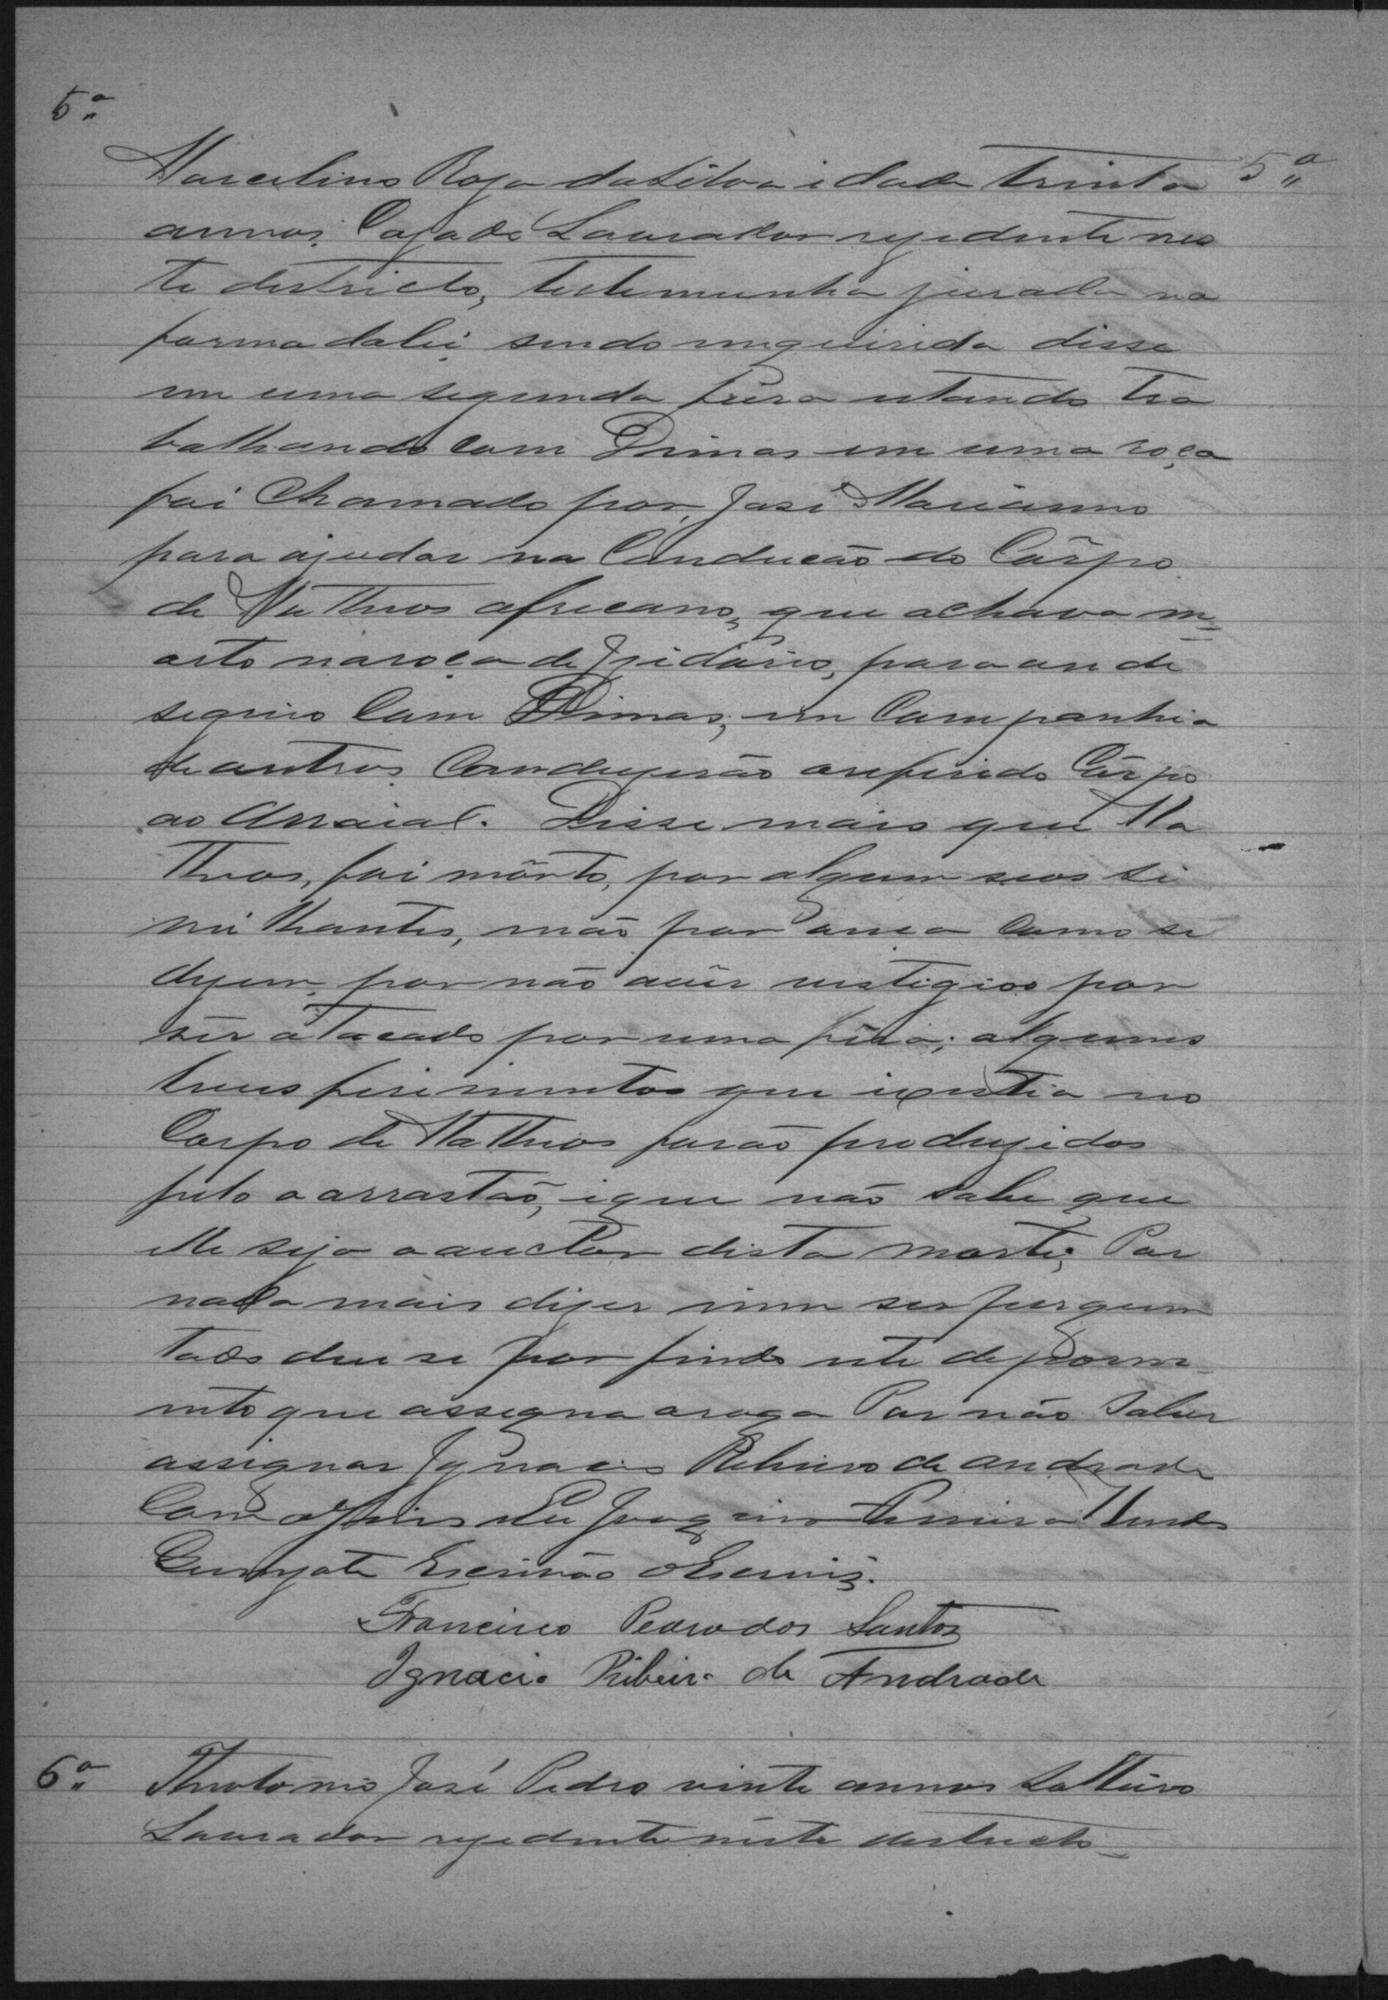 5ª
Marcelino Roza da Silva idade trinta 5ª
annos, Cazado Laurador rezedente nes
te destricto, testemunha jurada na
forma da lei sendo enquirida disse
em uma segunda feira estando tra
balhando com Dimas em uma roça
foi chamado por José Marianno
para ajudar na Condução do Côrpo
de Matheos africano, que achava m-
orto na roça de Izidório, para onde
seguio Com Dimas, em Companhia
de outros Conduzirão o referido Côrpo
ao Arraial. Disse mais que Ma
theos, foi môrto, por algum seos si
milhantes, não por onça Como se
dizem, por não aver vestigios por
ser atacado por uma féra; alguns
leves ferimentos que existia no
Corpo de Matheos forão produzidos
pelo o arrastão, e que não sabe que
elle seja o auctor desta morte; Por
nada mais dizer nem ser pergun
tado deu se por findo este depoim-
ento que assegna a rogo Por não saber
assignar Ignacio Ribeiro de Andrade
Com o Juis Eu Joaquim Pereira
Escrivão o Escrivi.
Francisco Pedro dos Santos
Ignacio Ribeiro de Andrade
6ª Theotonio José Pedro vinte annos Solteiro
Laurador rezedente neste destricto